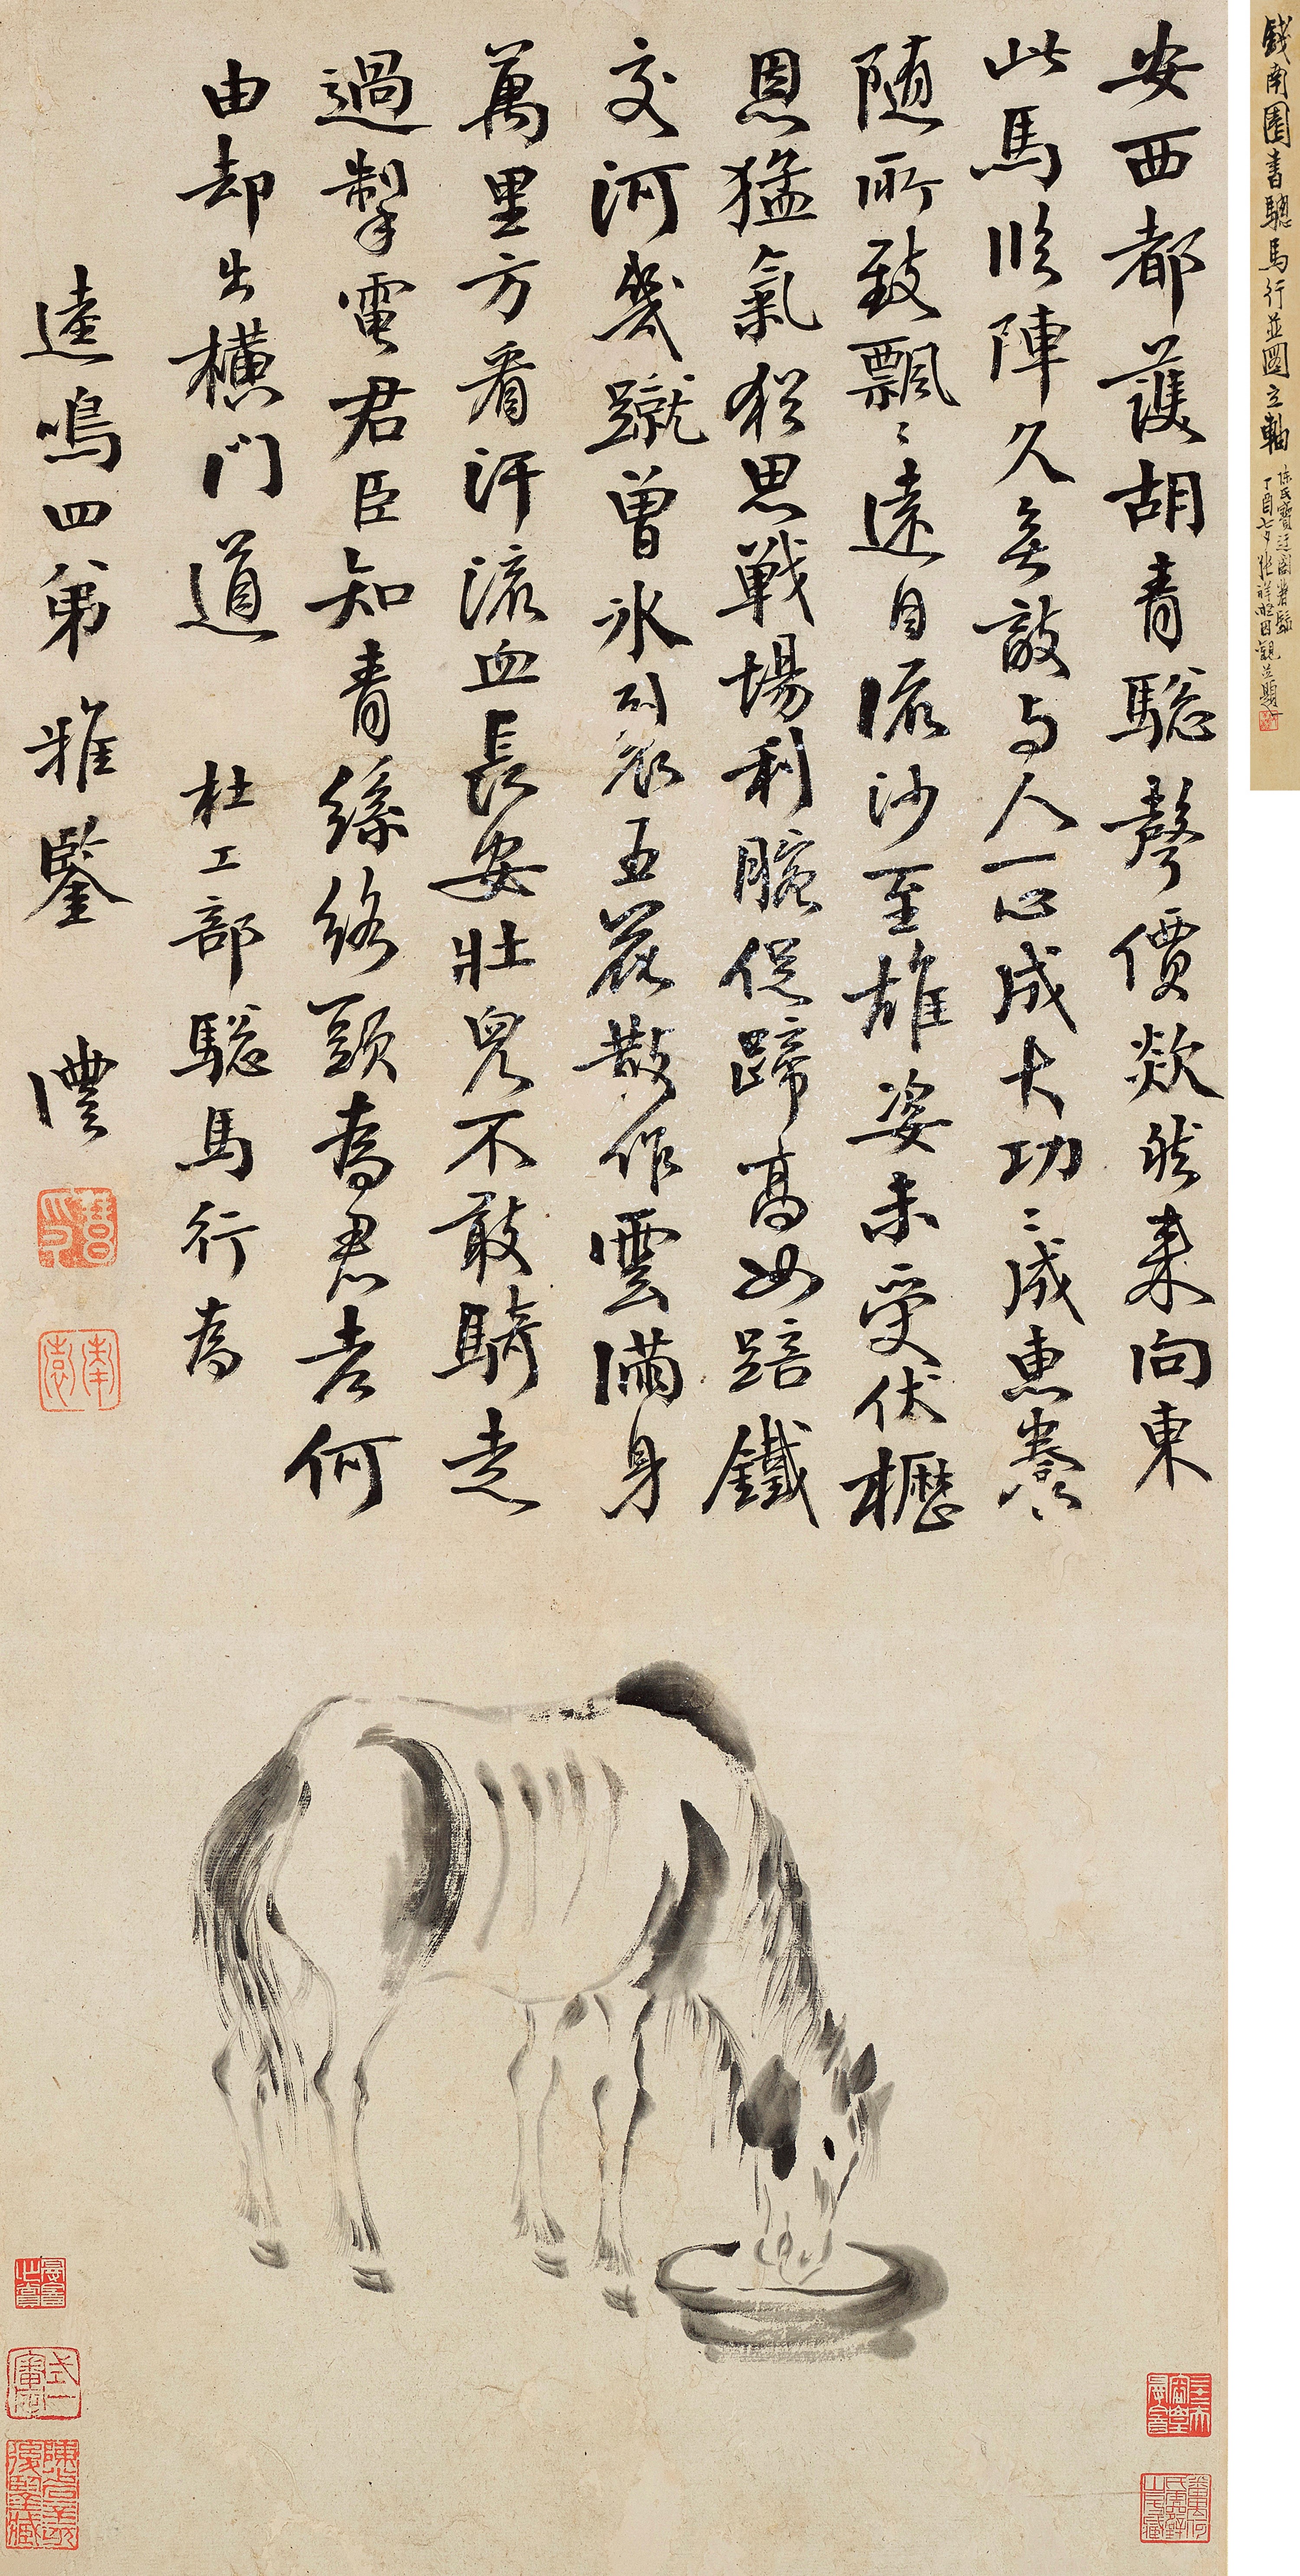 安西都護胡青驄聲價欻然来向東
此馬臨陣久無敵与人一心成大功
〻成惠養随所致飄〻遠自流沙至雄姿未受伏櫪
恩猛氣猶思戦場利腕促蹄高如踣鐵
交河幾蹴曾冰裂五花散作雲滿身
萬里方看汗流血長安壮兒不敢騎走
過掣電君臣知青絲絡頭為君老何
由却出橫門道 杜工部驄馬行為
逵鳴四弟雅鑒 灃
南園
錢南園書驄馬行並圖立軸
丁酉七夕張祥凝因觀並題